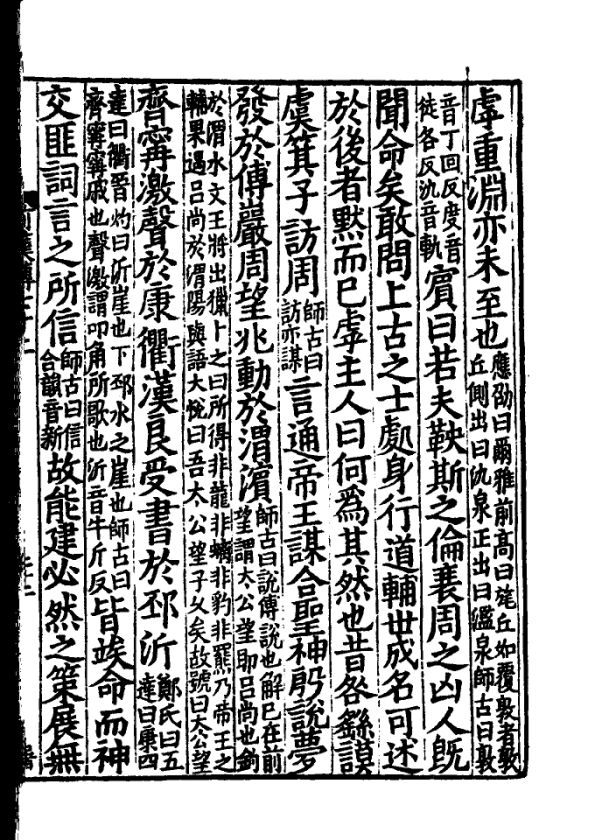 虖重淵亦未至也應劭曰爾雅前高曰旄丘如覆敦者敦丘側出曰氿泉正出曰濫泉師古曰敦
音丁回反度音徒各反氿音軌賓曰若夫鞅斯之倫衰周之凶人既
聞命矣敢問上古之士處身行道輔世成名可述
於後者黙而已虖主人曰何爲其然也昔咎繇謨
虞箕子訪周師古曰訪亦謀言通帝王謀合聖神殷說夢
發於傅巖周望兆動於渭濱師古曰說傅說也解已在前望謂太公望即吕尚也釣
於渭水文王將出獵卜之曰所得非龍非螭非豹非羆乃帝王之輔果遇吕尚於渭陽與語大悅曰吾太公望子乆矣故號曰太公望
齊甯激聲於康衢漢良受書於邳沂鄭氏曰五達曰康四
達曰衢晉灼曰沂崖也下邳水之崖也師古曰齊甯甯戚也聲激謂叩角所歌也沂音牛斤反皆竢命而神
交匪詞言之所信師古曰信合韻音新故能建必然之策展無